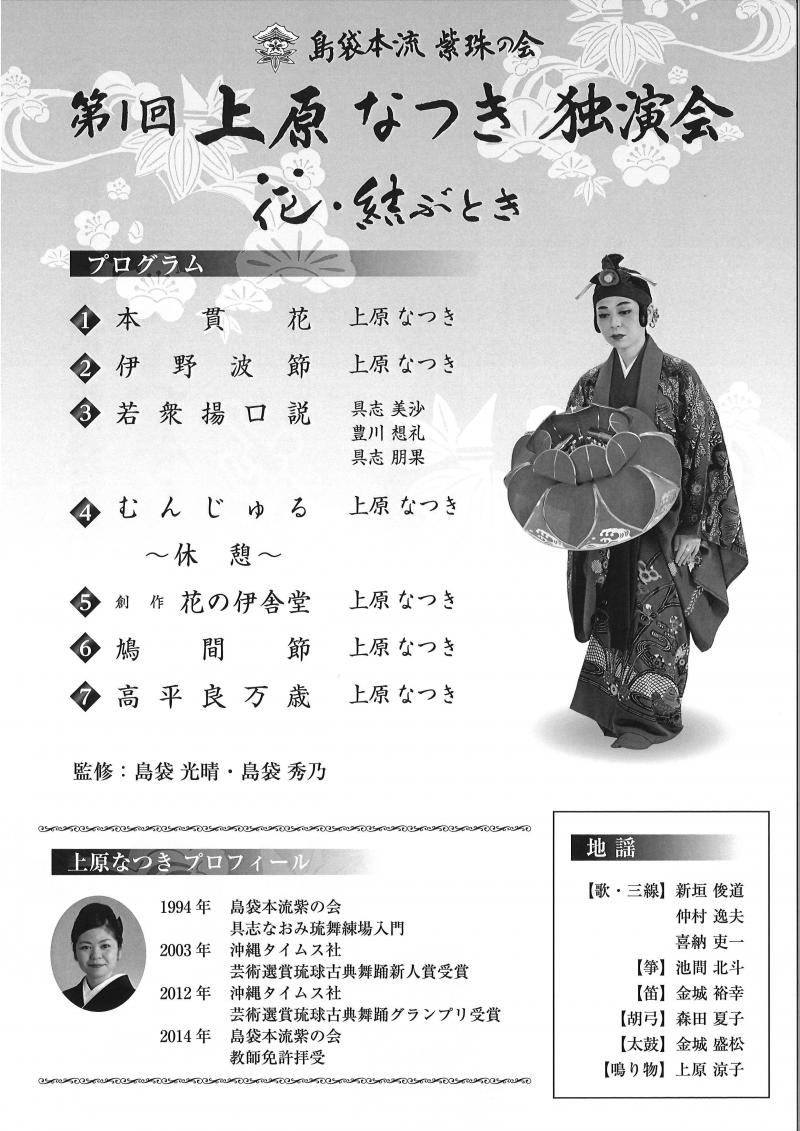 島袋本流 紫珠の会
第1回 上原 なつき 独演会
花・結ぶとき
プログラム
1 本貫花 上原 なつき
2 伊野波節 上原 なつき
3 若衆揚口説 具志 美沙
豊川 想礼
具志 朋果
4 むんじゅる 上原 なつき
～休憩～
5 創作 花の伊舎堂 上原 なつき
6 鳩間節 上原 なつき
7 高平良万歳 上原 なつき
監修：島袋 光晴・島袋 秀乃
上原なつき プロフィール
1994年 島袋本流紫の会
具志なおみ琉舞練場入門
2003年 沖縄タイムス社
芸術選賞琉球古典舞踊新人賞受賞
2012年 沖縄タイムス社
芸術選賞琉球古典舞踊グランプリ受賞
2014年 島袋本流紫の会
教師免許拝受
地謡
【歌・三線】新垣 俊道
仲村 逸夫
喜納 吏一
【箏】池間 北斗
【笛】金城 裕幸
【胡弓】森田 夏子
【太鼓】金城 盛松
【鳴り物】上原 涼子